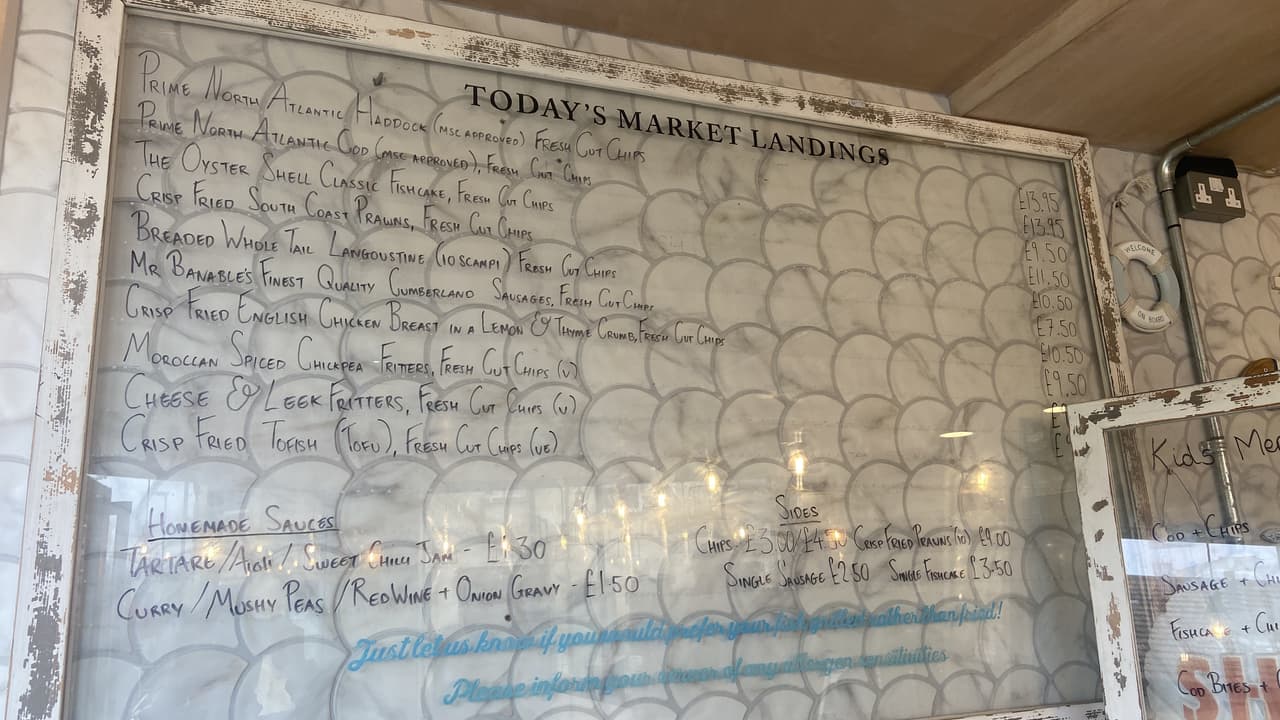 TODAY'S MARKET LANDINGS
PRIME NORTH ATLANTIC HADDOCK (MSC APPROVED) FRESH CUT CHIPS £13.95
PRIME NORTH ATLANTIC COD (MSC APPROVED), FRESH CUT CHIPS £13.95
THE OYSTER SHELL CLASSIC FISHCAKE, FRESH CUT CHIPS £9.50
CRISP FRIED SOUTH COAST PRAWNS, FRESH CUT CHIPS £11.50
BREADED WHOLE TAIL LANGOUSTINE (10 SCAMPI) FRESH CUT CHIPS £10.50
MR BANABLE'S FINEST QUALITY CUMBERLAND SAUSAGES, FRESH CUT CHIPS £7.50
CRISP FRIED ENGLISH CHICKEN BREAST IN A LEMON & THYME CRUMB, FRESH CUT CHIPS £10.50
MOROCCAN SPICED CHICKPEA FRITTERS, FRESH CUT CHIPS (V) £9.50
CHEESE & LEEK FRITTERS, FRESH CUT CHIPS (V) £
CRISP FRIED TOFISH (TOFU), FRESH CUT CHIPS (VE) £
HOMEMADE SAUCES
TARTARE/AIOLI/SWEET CHILLI JAM - £1.30
CURRY/MUSHY PEAS/RED WINE + ONION GRAVY - £1.50
SIDES
CHIPS £3.00/£4.50 CRISP FRIED PRAWNS (10) £9.00
SINGLE SAUSAGE £2.50 SINGLE FISHCAKE £3.50
Just let us know if you would prefer your fish grilled rather than fried!
Please inform your server of any allergen sensitivities
WELCOME
ON BOARD
Kids Me
COD + CHIPS
SAUSAGE + CHI
FISHCAKE + CHI
COD BITES +
SH